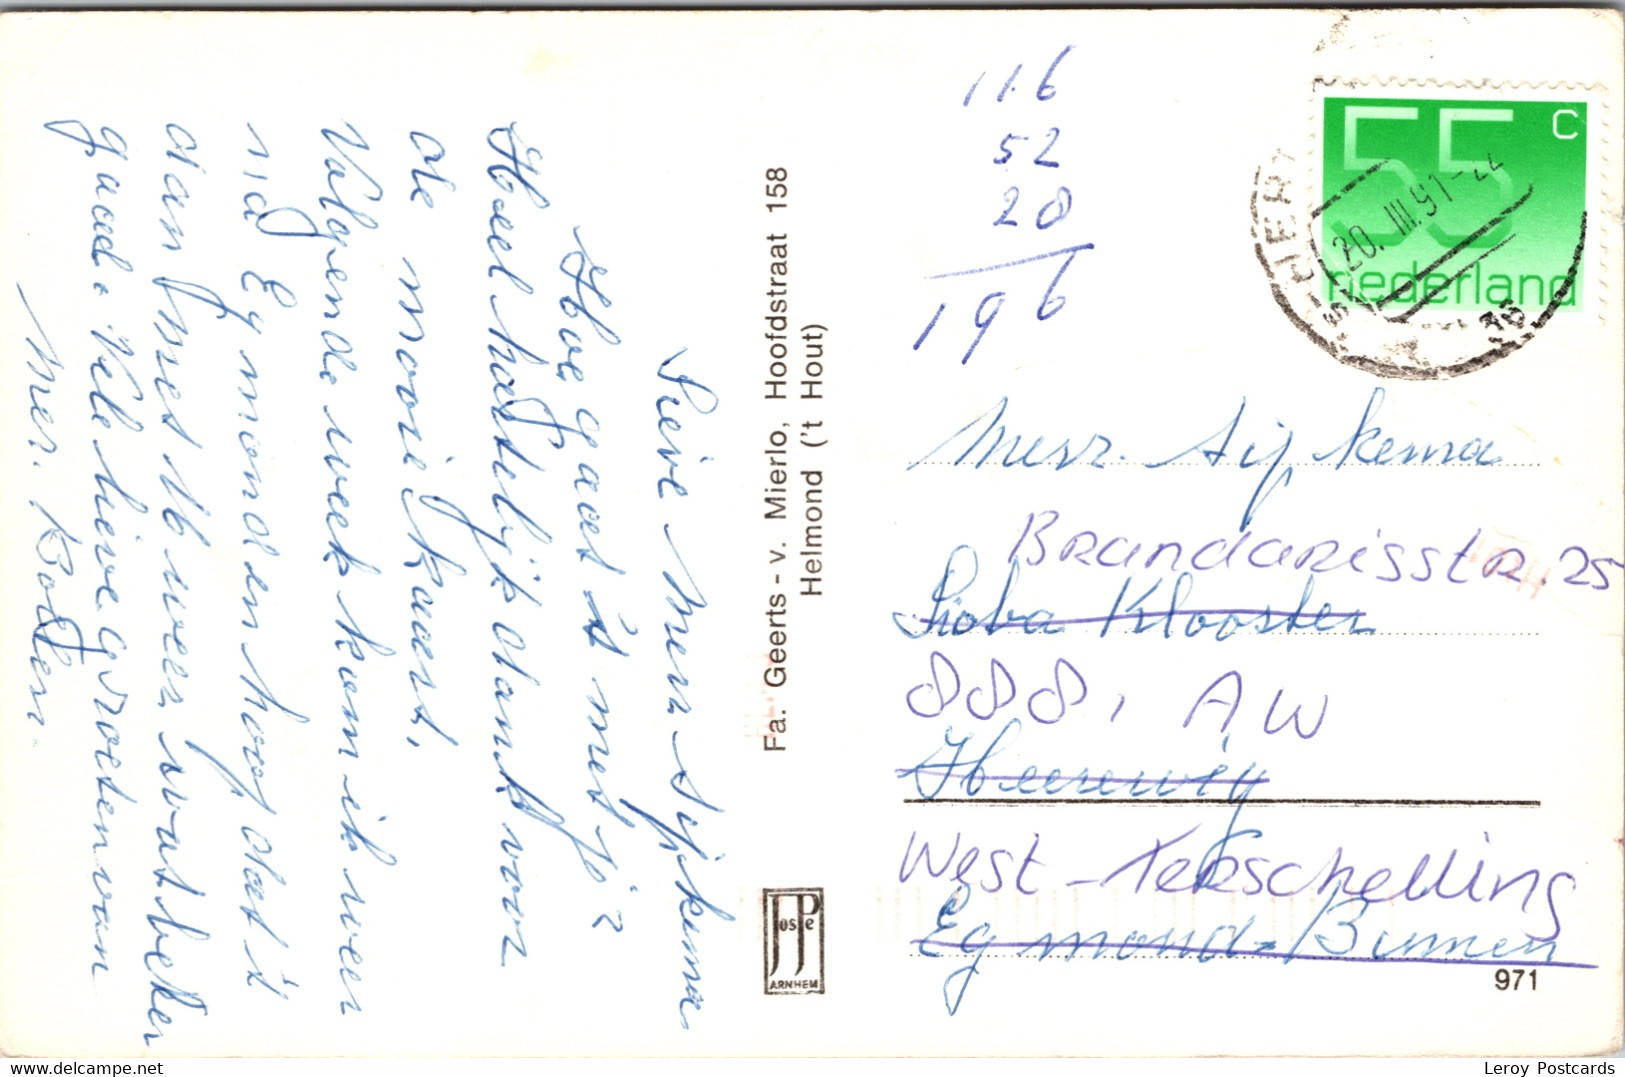 Lieve Mevr. Sijpkema
Hoe gaat 't met je?
Heel hartelijk dank voor
de mooie kaart.
Volgende week kom ik weer
n.a. Egmond en hoop dat 't
dan met U weer wat beter
gaad. Vele lieve groeten van
Mevr. Kooter.
Fa. Geerts - v. Mierlo, Hoofdstraat 158
Helmond ('t Hout)
JosPe
ARNHEM
116
52
28
196
55 c
nederland
20.III.91-22
Mevr. Sijpkema
Brandarisstr. 25
Lioba Klooster
8881 AW
Heereweg
West-Terschelling
Egmond-Binnen
971
delcampe.net
Leroy Postcards